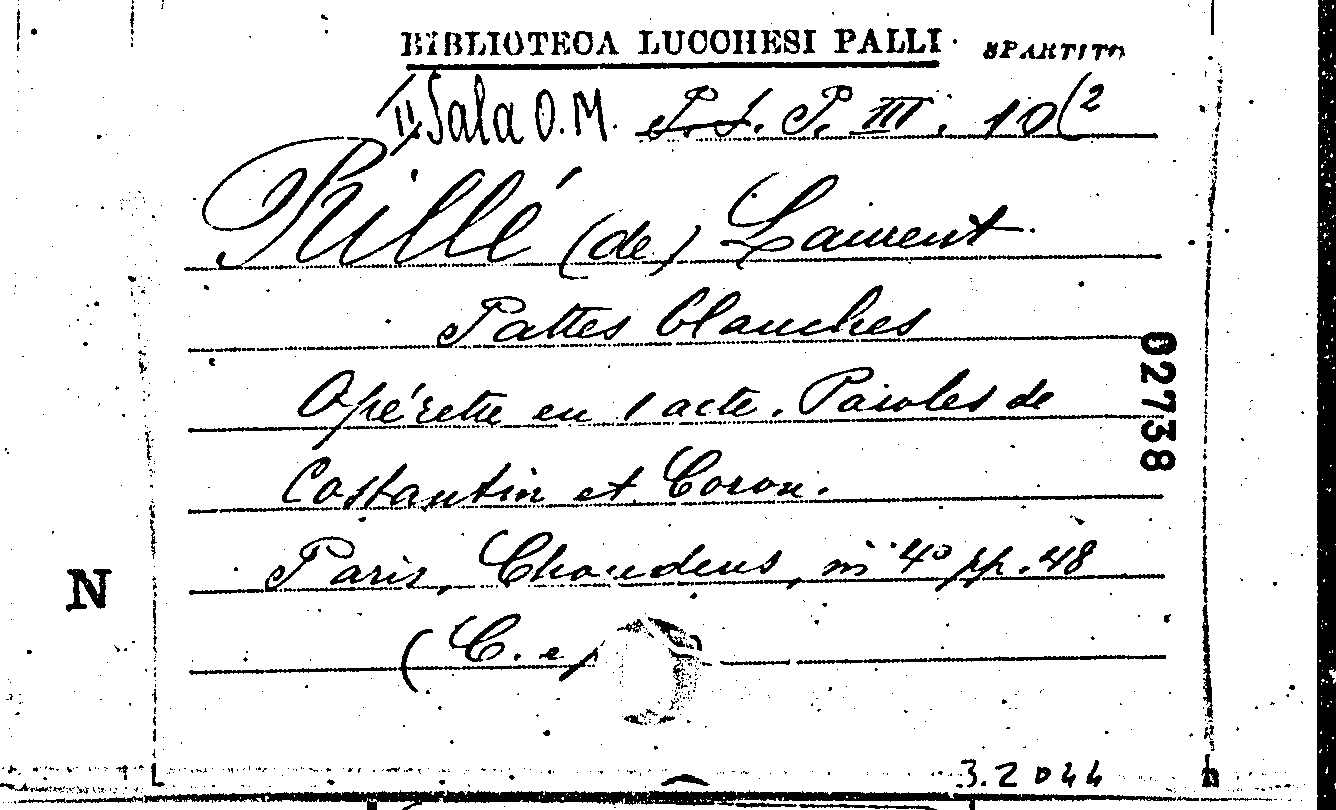 BIBLIOTECA LUCCHESI PALLI SPARTITO
II Sala O.M. P.S.P. III. 10(2
Rillé (de) Laurent
Pattes blanches
Opérette en 1 acte. Paroles de
Costantin et Coron.
Paris, Choudens, in 4º pp. 48
(C. e p
02738
N
3.2044